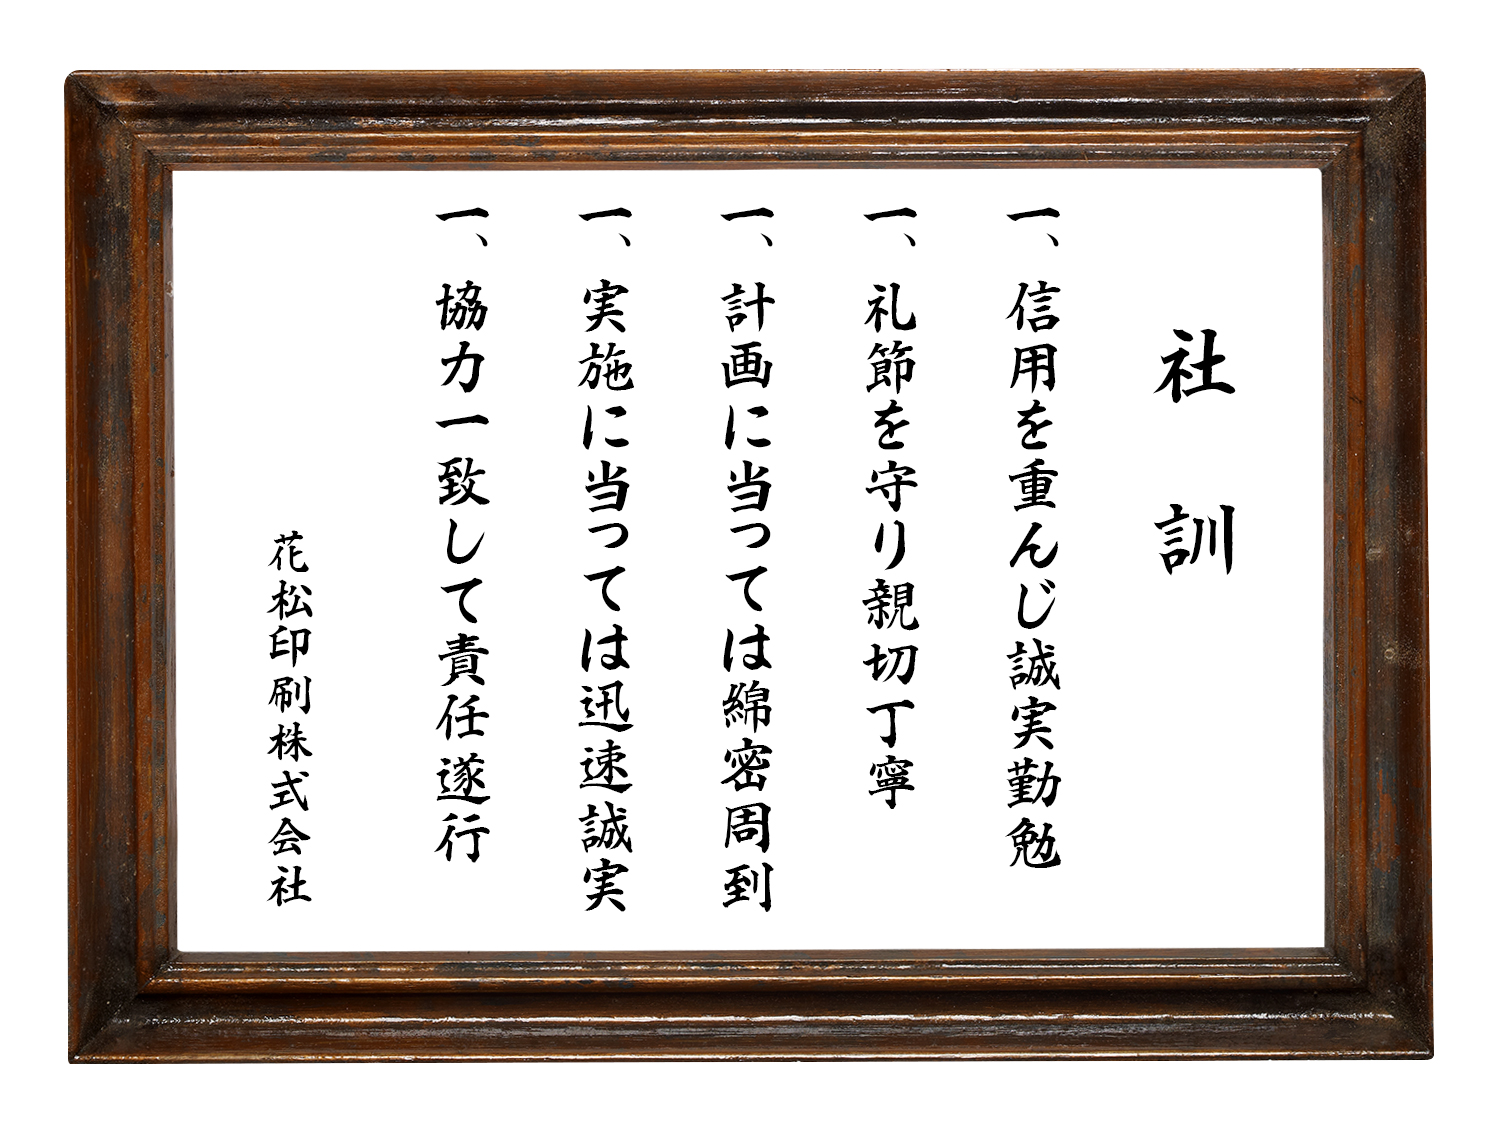 社訓
一、信用を重んじ誠実勤勉
一、礼節を守り親切丁寧
一、計画に当っては綿密周到
一、実施に当っては迅速誠実
一、協力一致して責任遂行
花松印刷株式会社